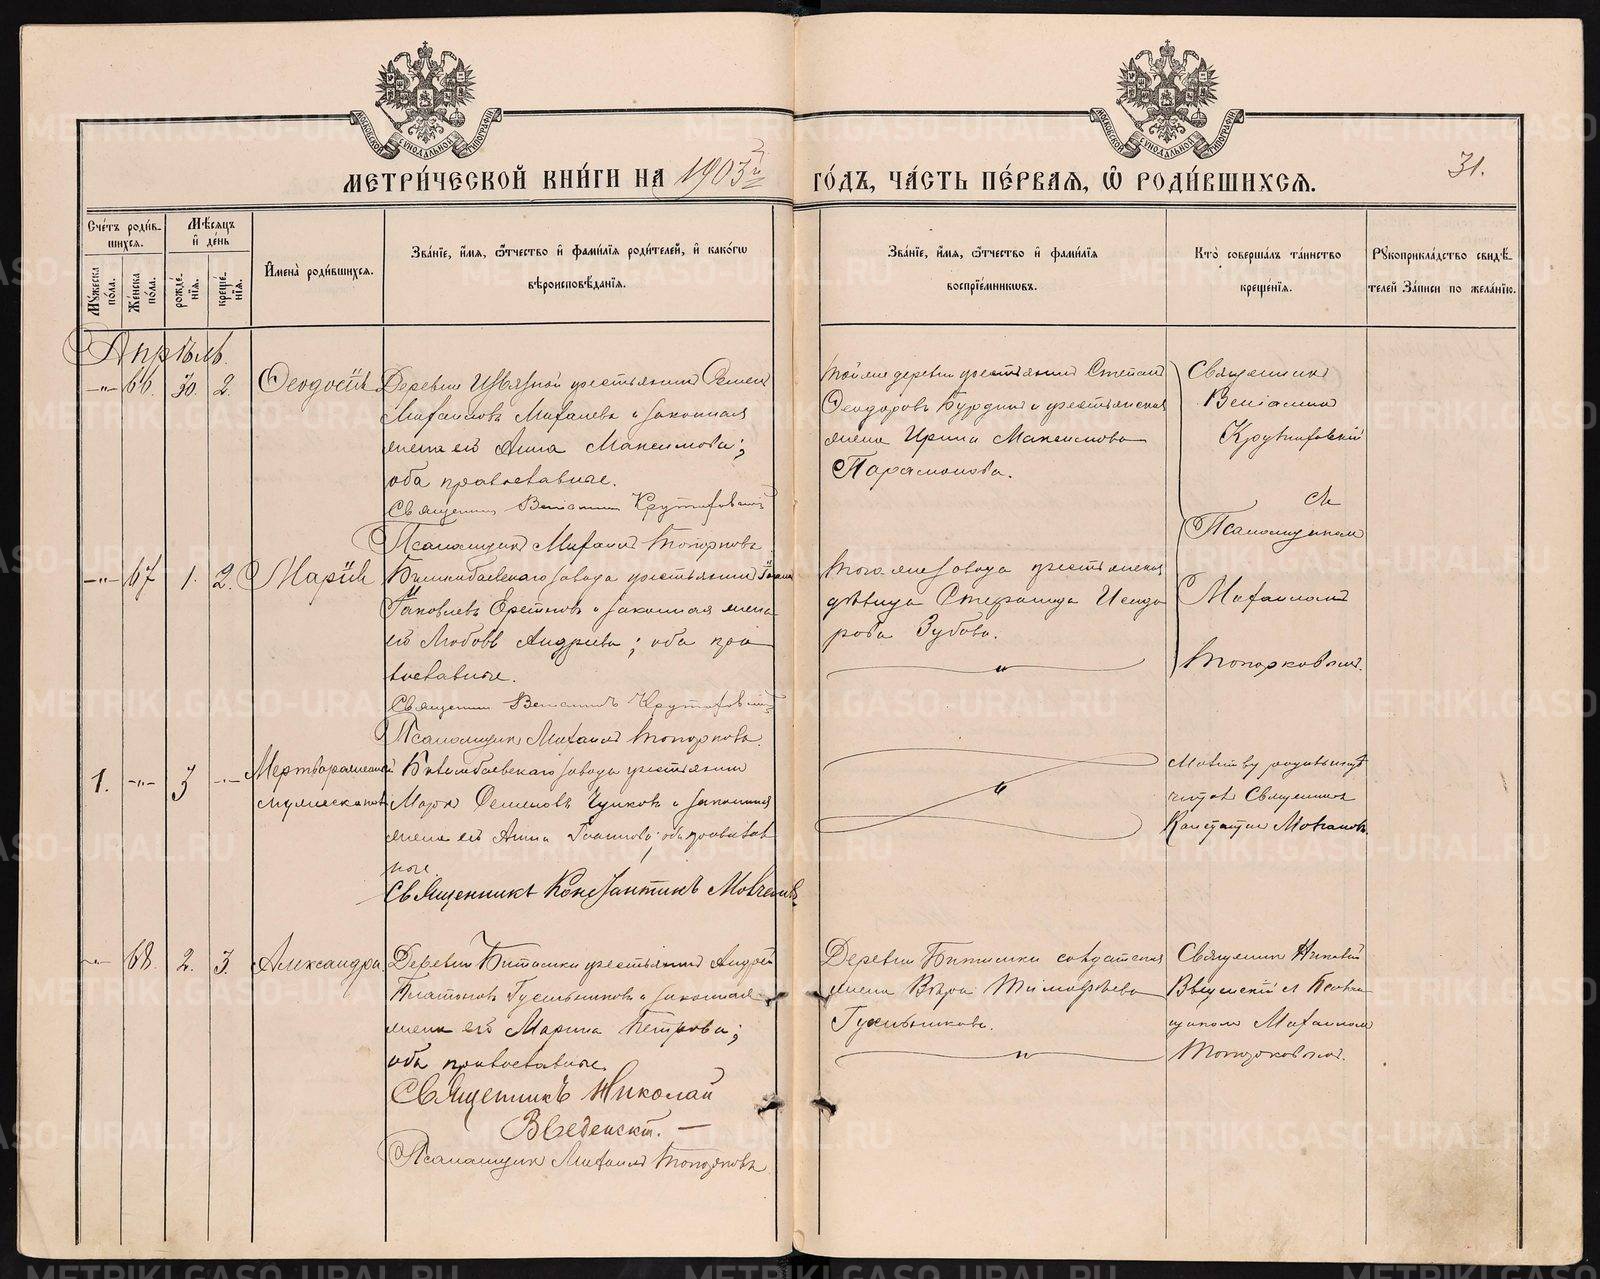 МЕТРИ́ЧЕСКОЙ КНИ́ГИ НА 1903й
ГО́ДЪ, ЧА́СТЬ ПЕ́РВАѦ, Ѡ҆ РОДИ́ВШИХСѦ.
31.
Сче́тъ роди́в-
шихсѧ.
Мѣ́сѧцъ
и҆ де́нь
Мꙋ́жеска
по́ла.
Же́нска
по́ла.
рожде́-
нїѧ.
креще́-
нїѧ.
И҆мена̀ роди́вшихсѧ.
Зва́нїе, и҆́мѧ, ѻ҆́тчество и҆ фами́лїѧ роди́телей, и҆ како́гѡ
вѣроисповѣ́данїѧ.
Зва́нїе, и҆́мѧ, ѻ҆́тчество и҆ фами́лїѧ
воспрїе́мникѡвъ.
Кто̀ соверша́лъ та́инство
креще́нїѧ.
Рꙋкоприкла́дство свидѣ́-
телей за́писи по жела́нїю.
Апрѣль.
-"- 66. 30. 2. Ѳеодосія
Деревни крестьянинъ Семенъ
Михаиловъ Михалевъ и законная
жена его Анна Максимова;
оба православные.
Священникъ Веніаминъ
Псаломщикъ Михаилъ Топорковъ
Той же деревни крестьянинъ Стефанъ
Ѳеодоровъ Бурдинъ и крестьянская
жена Ирина Максимова
Парамонова.
Священникъ
Веніаминъ
съ
Псаломщикомъ
Михаиломъ
Топорковымъ.
-"- 67 1. 2. Марія
Билимбаевскаго завода крестьянинъ
Іаковлевъ и законная жена
его Любовь Андреева; оба пра
вославные.
Священникъ Веніаминъ
Псаломщикъ Михаилъ Топорковъ.
Того же завода крестьянская
дѣвица Стефанида Исидо
рова Зубова.
1. -"- 3 -"- Мертворожденный
мужеска пола
Билимбаевскаго завода крестьянинъ
Маркъ Семеновъ и законная
жена его Анна Іоаннова; оба православ
ные.
Священникъ Константинъ
Молитву родильницѣ
читалъ Священникъ
Константинъ
-"- 68. 2. 3. Александра
Деревни Битимки крестьянинъ Андрей
Платоновъ Гусельниковъ и законная
жена его Марина Петрова;
оба православные.
Священникъ Николай
Введенскій. —
Псаломщикъ Михаилъ Топорковъ
Деревни Битимки солдатская
жена Вѣра Тимофеева
Гусельникова.
Священникъ Николай
Введенскій съ Псалом
щикомъ Михаиломъ
Топорковымъ.